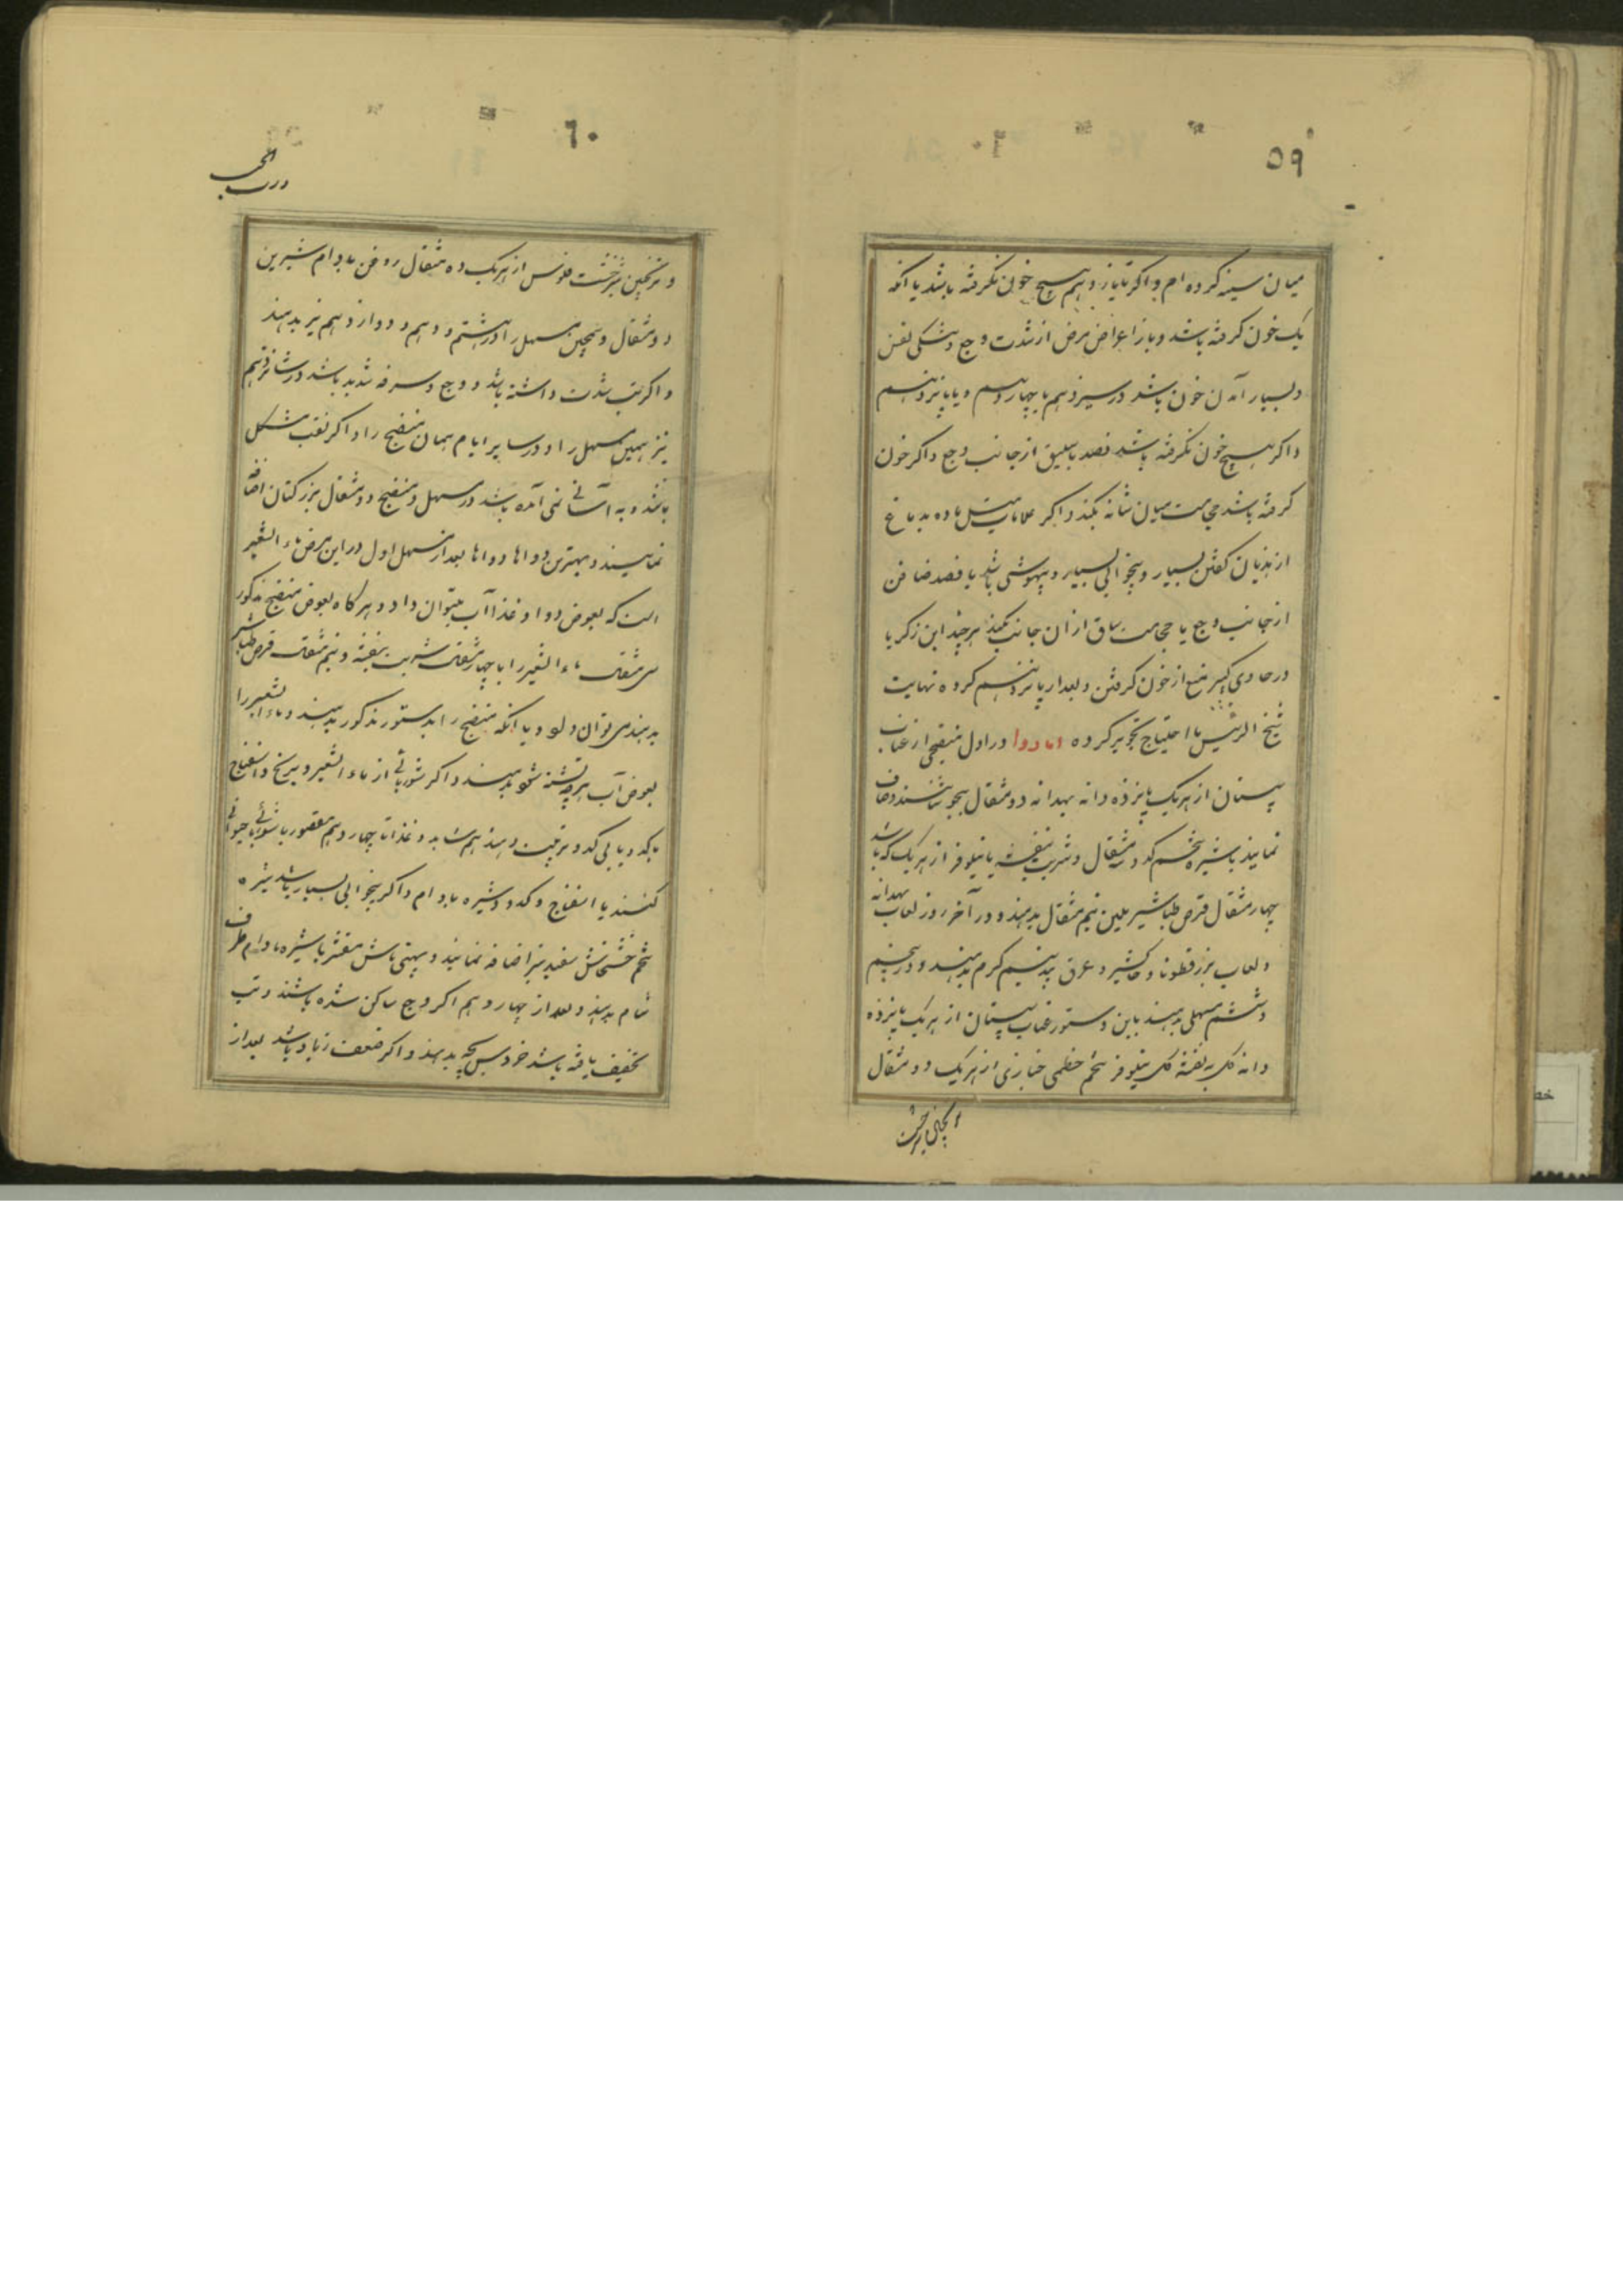 ۵۹
میان سینه کرده ام و اکر تا یازدهم هیچ خونی نکرفته باشد یا انکه
یک خون کرفته باشد و باز اعراض مرض از شدت وجع و تنکی نفس
و بسیار آمدن خون باشد در سیزدهم یا چهاردهم و یا پانزدهم
و اکر هیچ خون نکرفته باشد فصد باسلیق از جانب وجع و اکر خون
کرفته باشد حجامت میان شانه بکنند و اکر علامات میل ماده بدماغ
از هذیان کفتن بسیار و بیخوابی بسیار و بیهوشی باشد یا فصد صافن
از جانب وجع یا حجامت ساق از آن جانب بکنند هر چند ابن زکریا
در حاوی کبیر منع از خون کرفتن بعد از پانزدهم کرده نهایت
شیخ الرئیس با احتیاج تجویز کرده اما دوا در اول منضجی از عناب
سپستان از هریک پانزده دانه بهدانه دو مثقال بجوشانند و صاف
نمایند با شیره تخم کدو مثقال و شربت بنفشه یا نیلوفر از هریک که باشد
چهار مثقال قرص طباشیر ملین نیم مثقال بدهند و در آخر روز لعاب بهدانه
و لعاب بزرقطونا و خاکشیر و عرق بید نیم کرم بدهند و در پنجم
و ششم مسهلی بدهند باین دستور عناب سپستان از هریک پانزده
دانه کل بنفشه کل نیلوفر تخم خطمی خبازی از هریک دو مثقال
۶۰
و ترنجبین شیرخشت فلوس از هریک ده مثقال روغن بادام شیرین
دو مثقال و همچنین مسهل را در هشتم و دهم و دوازدهم نیز بدهند
و اکر تب شدت داشته باشد و وجع و سرفه شدید باشد در شانزدهم
نیز همین مسهل را و در سایر ایام همان منضج را و اکر نفث مشکل
باشد و به آسانی نمی آمده باشد در مسهل و منضج دو مثقال بزر کتان اضافه
نمایند و بهترین دواها بعد از مسهل اول در این مرض ماء الشعیر
است که بعوض دوا و غذا آب میتوان داد و هرکاه بعوض منضج مذکور
سی مثقال ماء الشعیر را با چهار مثقال شربت بنفشه و نیم مثقال قرص طباشیر
بدهند می توان و یا انکه منضج را بدستور مذکور بدهند و ماء الشعیر را
بعوض آب هرچه تشنه شود بدهند و اکر شوربائی از ماء الشعیر و برنج و اسفناج
یا کدو یا بی کدو ترتیب دهند هم شاید و غذا تا چهاردهم مقصور
کنند با اسفناج و کدو و شیره بادام و اکر بیخوابی بسیار باشد شیره
تخم خشخاش سفید نیز اضافه نمایند و پهتی ماش مقشر با شیره بادام طرف
شام بدهند و بعد از چهاردهم اکر وجع ساکن شده باشد و تب
تخفیف یافته باشد خروس بچه بدهند و اکر ضعف زیاد باشد بعد از